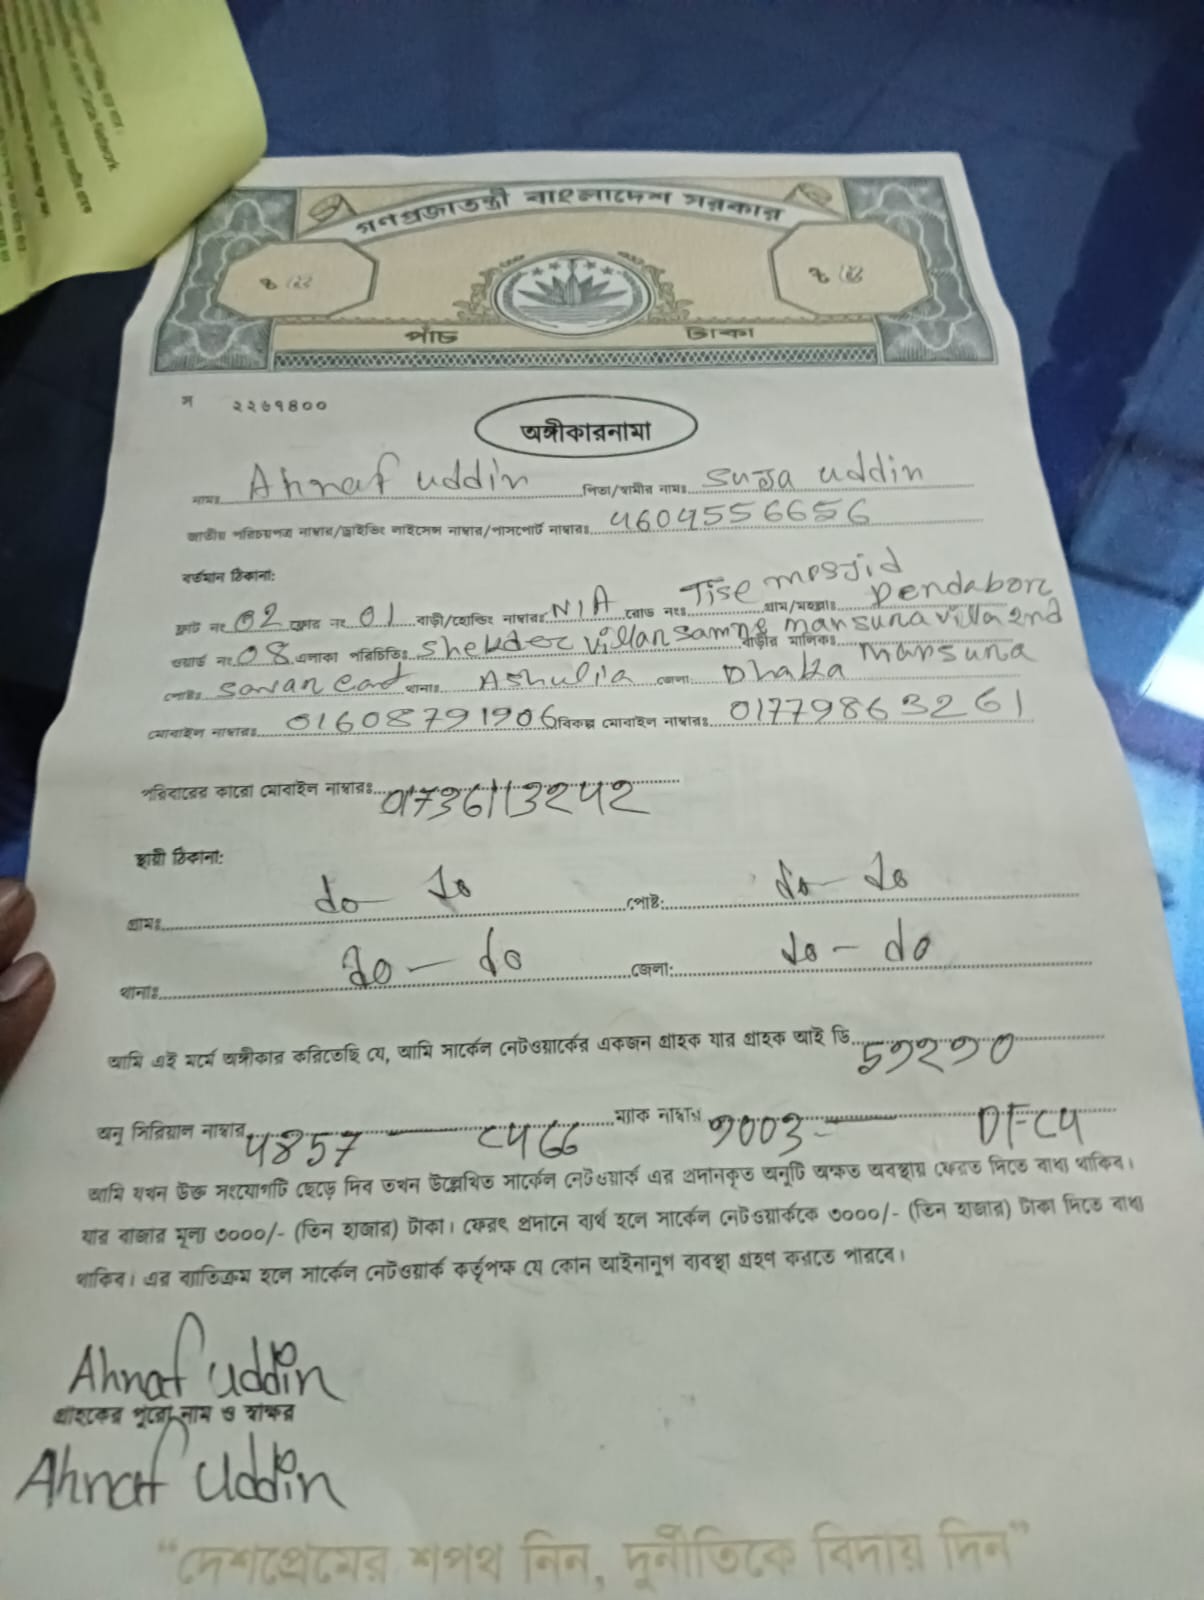 গণপ্রজাতন্ত্রী বাংলাদেশ সরকার
পাঁচ টাকা
স ২২৬৭৪০০
অঙ্গীকারনামা
নামঃ Ahnaf uddin পিতা/স্বামীর নামঃ Suja uddin
জাতীয় পরিচয়পত্র নাম্বার/ড্রাইভিং লাইসেন্স নাম্বার/পাসপোর্ট নাম্বারঃ 4604556656
বর্তমান ঠিকানা:
ফ্লাট নং 02 ফ্লোর নং 01 বাড়ী/হোল্ডিং নাম্বারঃ N/A রোড নংঃ Tise mosjid গ্রাম/মহল্লাঃ Dendabor
ওয়ার্ড নং 08 এলাকা পরিচিতিঃ Shekder villa বাড়ীর মালিকঃ mansuna villa 2nd mansuna
পোষ্টঃ Savar থানাঃ Ashulia জেলা: Dhaka
মোবাইল নাম্বারঃ 01608791906 বিকল্প মোবাইল নাম্বারঃ 01779863261
পরিবারের কারো মোবাইল নাম্বারঃ 01736113242
স্থায়ী ঠিকানা:
গ্রামঃ do do পোষ্ট: do- do
থানাঃ do - do জেলা: do - do
আমি এই মর্মে অঙ্গীকার করিতেছি যে, আমি সার্কেল নেটওয়ার্কের একজন গ্রাহক যার গ্রাহক আই ডি 59290
অনু সিরিয়াল নাম্বার 4857 — C466 ম্যাক নাম্বার 9003 — DFC4
আমি যখন উক্ত সংযোগটি ছেড়ে দিব তখন উল্লেখিত সার্কেল নেটওয়ার্ক এর প্রদানকৃত অনুটি অক্ষত অবস্থায় ফেরত দিতে বাধ্য থাকিব।
যার বাজার মূল্য ৩০০০/- (তিন হাজার) টাকা। ফেরৎ প্রদানে ব্যর্থ হলে সার্কেল নেটওয়ার্ককে ৩০০০/- (তিন হাজার) টাকা দিতে বাধ্য
থাকিব। এর ব্যাতিক্রম হলে সার্কেল নেটওয়ার্ক কর্তৃপক্ষ যে কোন আইনানুগ ব্যবস্থা গ্রহণ করতে পারবে।
Ahnaf Uddin
গ্রাহকের পুরো নাম ও স্বাক্ষর
Ahnaf Uddin
"দেশপ্রেমের শপথ নিন, দুর্নীতিকে বিদায় দিন"